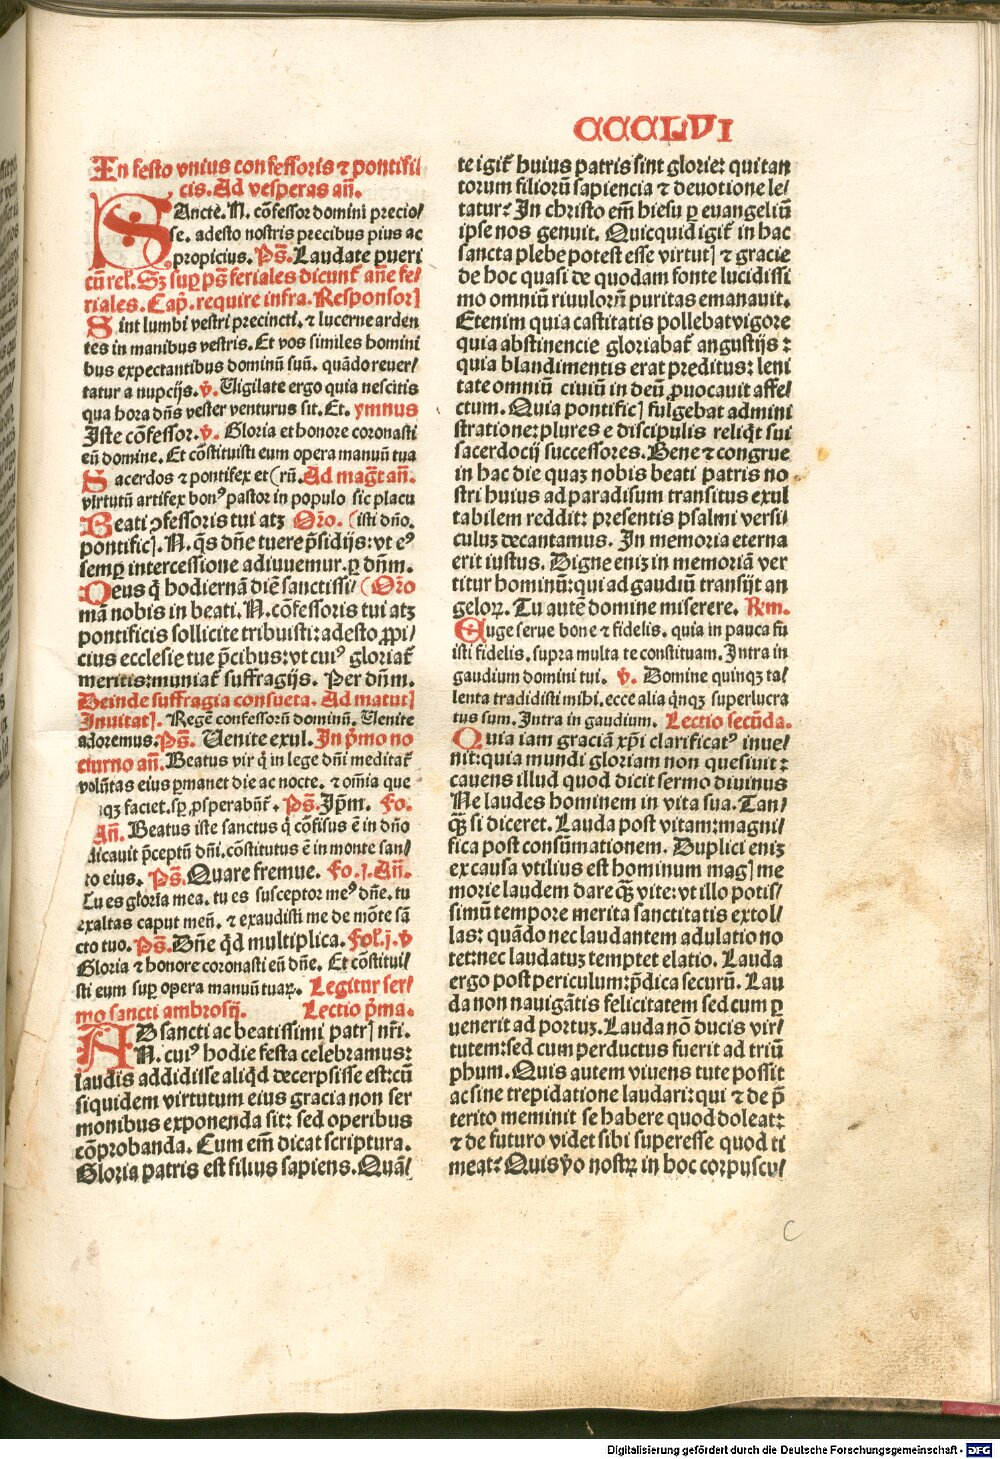 CCCLVI
In festo vnius confessoris ⁊ pontifi/
cis. Ad vesperas añ.
SAncte. N. cõfessor domini precio/
se. adesto nostris precibus pius ac
propicius. Ps̃. Laudate pueri
cũ rel̓. Sꝫ suꝑ ps̃ feriales dicunt̃ añe fe/
riales. Cap̃. require infra. Responsorꝭ
Sint lumbi vestri precincti. ⁊ lucerne arden
tes in manibus vestris. Et vos similes homini
bus expectantibus dominũ suũ. quãdo reuer/
tatur a nupcijs. v̾. Uigilate ergo quia nescitis
qua hora dñs vester venturus sit. Et. ymnus
Iste cõfessor. v̾. Gloria et honore coronasti
eũ domine. Et cõstituisti eum opera manuũ tua
Sacerdos ⁊ pontifex et (rũ. Ad mag̃t añ.
virtutũ artifex bonꝰ pastor in populo sic placu
Beati ꝯfessoris tui atꝫ Oro̾. (isti dño.
pontificꝭ. N. q̃s dñe tuere p̃sidijs: vt eꝰ
sempꝑ intercessione adiuuemur. ꝑ dñm.
Deus q̇ hodiernã diẽ sanctissi/ (Oro̾
mã nobis in beati. N. cõfessoris tui atꝫ
pontificis sollicite tribuisti: adesto ꝓpi/
cius ecclesie tue p̃cibus: vt cuiꝰ gloriat̃
meritis: muniat̃ suffragijs. Per dñm.
Deinde suffragia consueta. Ad matutꝭ
Inuitatꝭ. Regẽ confessorũ dominũ. Uenite
adoremus. Ps̃. Uenite exul. In p̃mo no
cturno añ. Beatus vir q̇ in lege dñi meditat̃
volũtas eius ꝑmanet die ac nocte. ⁊ om̃ia que
iqꝫ faciet. sꝑ ꝓsperabũt̃. Ps̃. Ip̃m. Fo.
Añ. Beatus iste sanctus q̇ cõfisus ẽ in dño
dicauit p̃ceptũ dñi. cõstitutus ẽ in monte san/
to eius. Ps̃. Quare fremue. Fo. j. Añ.
Tu es gloria mea. tu es susceptor meꝰ dñe. tu
exaltas caput meũ. ⁊ exaudisti me de mõte sã
cto tuo. Ps̃. Dñe q̇d multiplica. Fol. j. v̾
Gloria ⁊ honore coronasti eũ dñe. Et cõstitui/
sti eum suꝑ opera manuũ tuaꝝ. Legitur ser/
mo sancti ambrosij. Lectio p̃ma.
AD sancti ac beatissimi patrꝭ nr̃i.
N. cuiꝰ hodie festa celebramus:
laudis addidisse aliq̇d decerpsisse est: cũ
siquidem virtutum eius gracia non ser
monibus exponenda sit: sed operibus
cõprobanda. Cum em̃ dicat scriptura.
Gloria patris est filius sapiens. Quã/
te igit̃ huius patris sint glorie: qui tan
torum filiorũ sapiencia ⁊ deuotione le/
tatur: In christo em̃ hiesu ꝑ euangeliũ
ipse nos genuit. Quicquid igit̃ in hac
sancta plebe potest esse virtutꝭ ⁊ gracie
de hoc quasi de quodam fonte lucidissi
mo omniũ riuulorũ puritas emanauit.
Etenim quia castitatis pollebat vigore
quia abstinencie gloriabat̃ angustijs:
quia blandimentis erat preditus: leni
tate omniũ ciuiũ in deũ ꝓuocauit affe/
ctum. Quia pontificꝭ fulgebat admini
stratione: plures e discipulis reliq̇t sui
sacerdocij successores. Bene ⁊ congrue
in hac die quaꝫ nobis beati patris no
stri huius ad paradisum transitus exul
tabilem reddit: presentis psalmi versi/
culuꝫ decantamus. In memoria eterna
erit iustus. Digne eniꝫ in memoriã ver
titur hominũ: qui ad gaudiũ transijt an
geloꝝ. Tu autẽ domine miserere. Rm.
Euge serue bone ⁊ fidelis. quia in pauca fu
isti fidelis. supra multa te constituam. Intra in
gaudium domini tui. v̾. Domine quinqꝫ ta/
lenta tradidisti mihi. ecce alia q̇nqꝫ superlucra
tus sum. Intra in gaudium. Lectio secũda.
Quia iam graciã xp̃i clarificatꝰ inue/
nit: quia mundi gloriam non quesiuit:
cauens illud quod dicit sermo diuinus
Ne laudes hominem in vita sua. Tan/
qꝫ̃ si diceret. Lauda post vitam: magni/
fica post consũmationem. Duplici eniꝫ
ex causa vtilius est hominum magꝭ me
morie laudem dare qꝫ̃ vite: vt illo potis/
simũ tempore merita sanctitatis extol/
las: quãdo nec laudantem adulatio no
tet: nec laudatuꝫ temptet elatio. Lauda
ergo post periculum: p̃dica securũ. Lau
da non nauigãtis felicitatem sed cum ꝑ
uenerit ad portuꝫ. Lauda nõ ducis vir/
tutem: sed cum perductus fuerit ad triũ
phum. Quis autem viuens tute possit
ac sine trepidatione laudari: qui ⁊ de p̃
terito meminit se habere quod doleat:
⁊ de futuro videt sibi superesse quod ti
meat: Quis v̾o nostꝝ in hoc corpuscu/
C
Digitalisierung gefördert durch die Deutsche Forschungsgemeinschaft - DFG